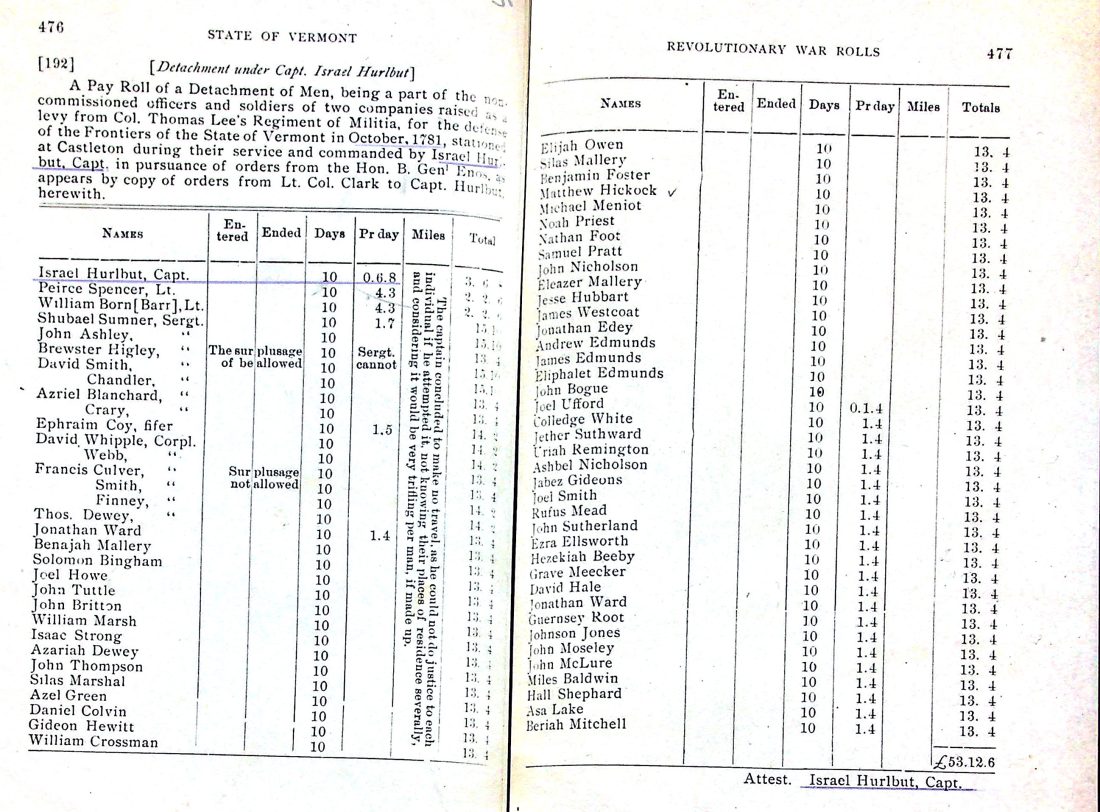 476
STATE OF VERMONT
[192] [Detachment under Capt. Israel Hurlbut]
A Pay Roll of a Detachment of Men, being a part of the non-
commissioned officers and soldiers of two companies raised as a
levy from Col. Thomas Lee's Regiment of Militia, for the defense
of the Frontiers of the State of Vermont in October, 1781, stationed
at Castleton during their service and commanded by Israel Hur-
but, Capt. in pursuance of orders from the Hon. B. Genl Enos, as
appears by copy of orders from Lt. Col. Clark to Capt. Hurlbut,
herewith.
NAMES En-tered Ended Days Pr day Miles Total
Israel Hurlbut, Capt. 10 0.6.8 3. 6.
Peirce Spencer, Lt. 10 4.3 2. 2. 6
William Born[Barr], Lt. 10 4.3 2. 2. 6
Shubael Sumner, Sergt. 10 1.7 15.1
John Ashley, “ 10 15.10
Brewster Higley, “ The sur plusage 10 Sergt. 13. 4
David Smith, “ of be allowed 10 cannot 15.10
Chandler, “ 10 15.1
Azriel Blanchard, “ 10 13. 4
Crary, “ 10 13. 4
Ephraim Coy, fifer 10 1.5 14. 2
David Whipple, Corpl. 10 14. 2
Webb, “ 10 14. 2
Francis Culver, “ Sur plusage 10 13. 4
Smith, “ not allowed 10 13. 4
Finney, “ 10 14. 2
Thos. Dewey, “ 10 14. 2
Jonathan Ward 10 1.4 13. 4
Benajah Mallery 10 13. 4
Solomon Bingham 10 13. 4
Joel Howe 10 13. 4
John Tuttle 10 13. 4
John Britton 10 13. 4
William Marsh 10 13. 4
Isaac Strong 10 13. 4
Azariah Dewey 10 13. 4
John Thompson 10 13. 4
Silas Marshal 10 13. 4
Azel Green 10 13. 4
Daniel Colvin 10 13. 4
Gideon Hewitt 10 13. 4
William Crossman 10 13. 4
The captain concluded to make no travel, as he could not do justice to each
individual if he attempted it, not knowing their places of residence severally,
and considering it would be very trifling per man, if made up.
REVOLUTIONARY WAR ROLLS
477
NAMES En-tered Ended Days Pr day Miles Totals
Elijah Owen 10 13. 4
Silas Mallery 10 13. 4
Benjamin Foster 10 13. 4
Matthew Hickock ✓ 10 13. 4
Michael Meniot 10 13. 4
Noah Priest 10 13. 4
Nathan Foot 10 13. 4
Samuel Pratt 10 13. 4
John Nicholson 10 13. 4
Eleazer Mallery 10 13. 4
Jesse Hubbart 10 13. 4
James Westcoat 10 13. 4
Jonathan Edey 10 13. 4
Andrew Edmunds 10 13. 4
James Edmunds 10 13. 4
Eliphalet Edmunds 10 13. 4
John Bogue 10 13. 4
Joel Ufford 10 0.1.4 13. 4
Colledge White 10 1.4 13. 4
Jether Suthward 10 1.4 13. 4
Uriah Remington 10 1.4 13. 4
Ashbel Nicholson 10 1.4 13. 4
Jabez Gideons 10 1.4 13. 4
Joel Smith 10 1.4 13. 4
Rufus Mead 10 1.4 13. 4
John Sutherland 10 1.4 13. 4
Ezra Ellsworth 10 1.4 13. 4
Hezekiah Beeby 10 1.4 13. 4
Grave Meecker 10 1.4 13. 4
David Hale 10 1.4 13. 4
Jonathan Ward 10 1.4 13. 4
Guernsey Root 10 1.4 13. 4
Johnson Jones 10 1.4 13. 4
John Moseley 10 1.4 13. 4
John McLure 10 1.4 13. 4
Miles Baldwin 10 1.4 13. 4
Hall Shephard 10 1.4 13. 4
Asa Lake 10 1.4 13. 4
Beriah Mitchell 10 1.4 13. 4
£53.12.6
Attest. Israel Hurlbut, Capt.